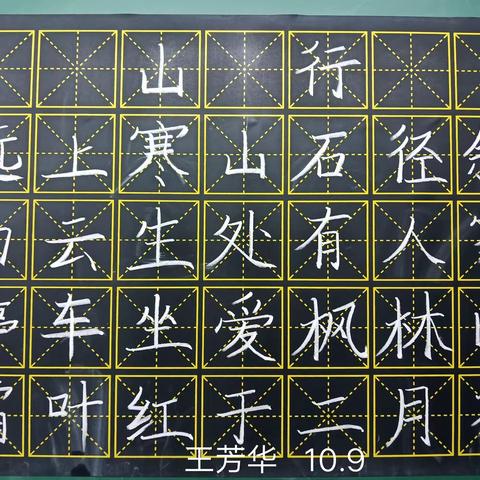 山行
远上寒山石径
云生处有人
车坐爱枫林
叶红于二月
王芳华 10.9